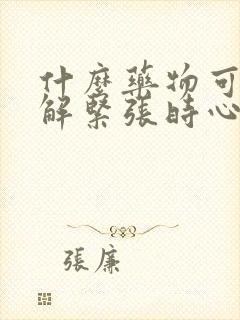 什麼藥物可
解緊張時心
張廉